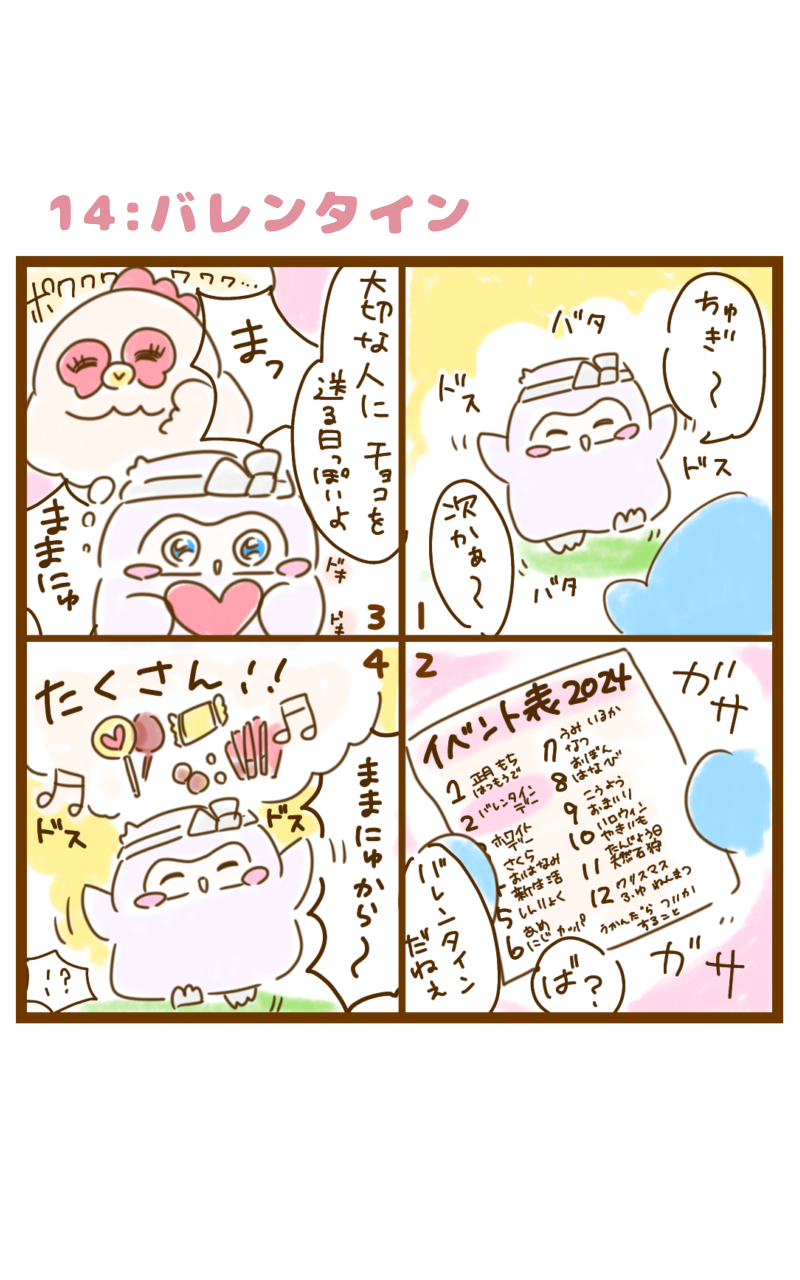 14:バレンタイン
1
ちゅぎ〜
バタ
ドス
ドス
次かぁ〜
バタ
2
ガサ
イベント表2024
1 正月 もち
はつもうで
2 バレンタイン
デー
ホワイト
デー
さくら
おはなみ
新生活
5 しんりょく
6 あめ
にじ カッパ
7 うみ いるか
なつ
8 おぼん
はなび
9 こうよう
おまいり
10 ハロウィン
やきいも
11 たんじょう日
天然石狩
12 クリスマス
ふゆ ねんまつ
うかんだら ついか
すること
バレンタイン
だねぇ
ば?
ガサ
3
大切な人に チョコを
送る日っぽいよ
まっ
ポワワワ ワワワ…
ままにゅ
ドキ
ドキ
4
たくさん!!
ままにゅから〜
ドス
ドス
!?